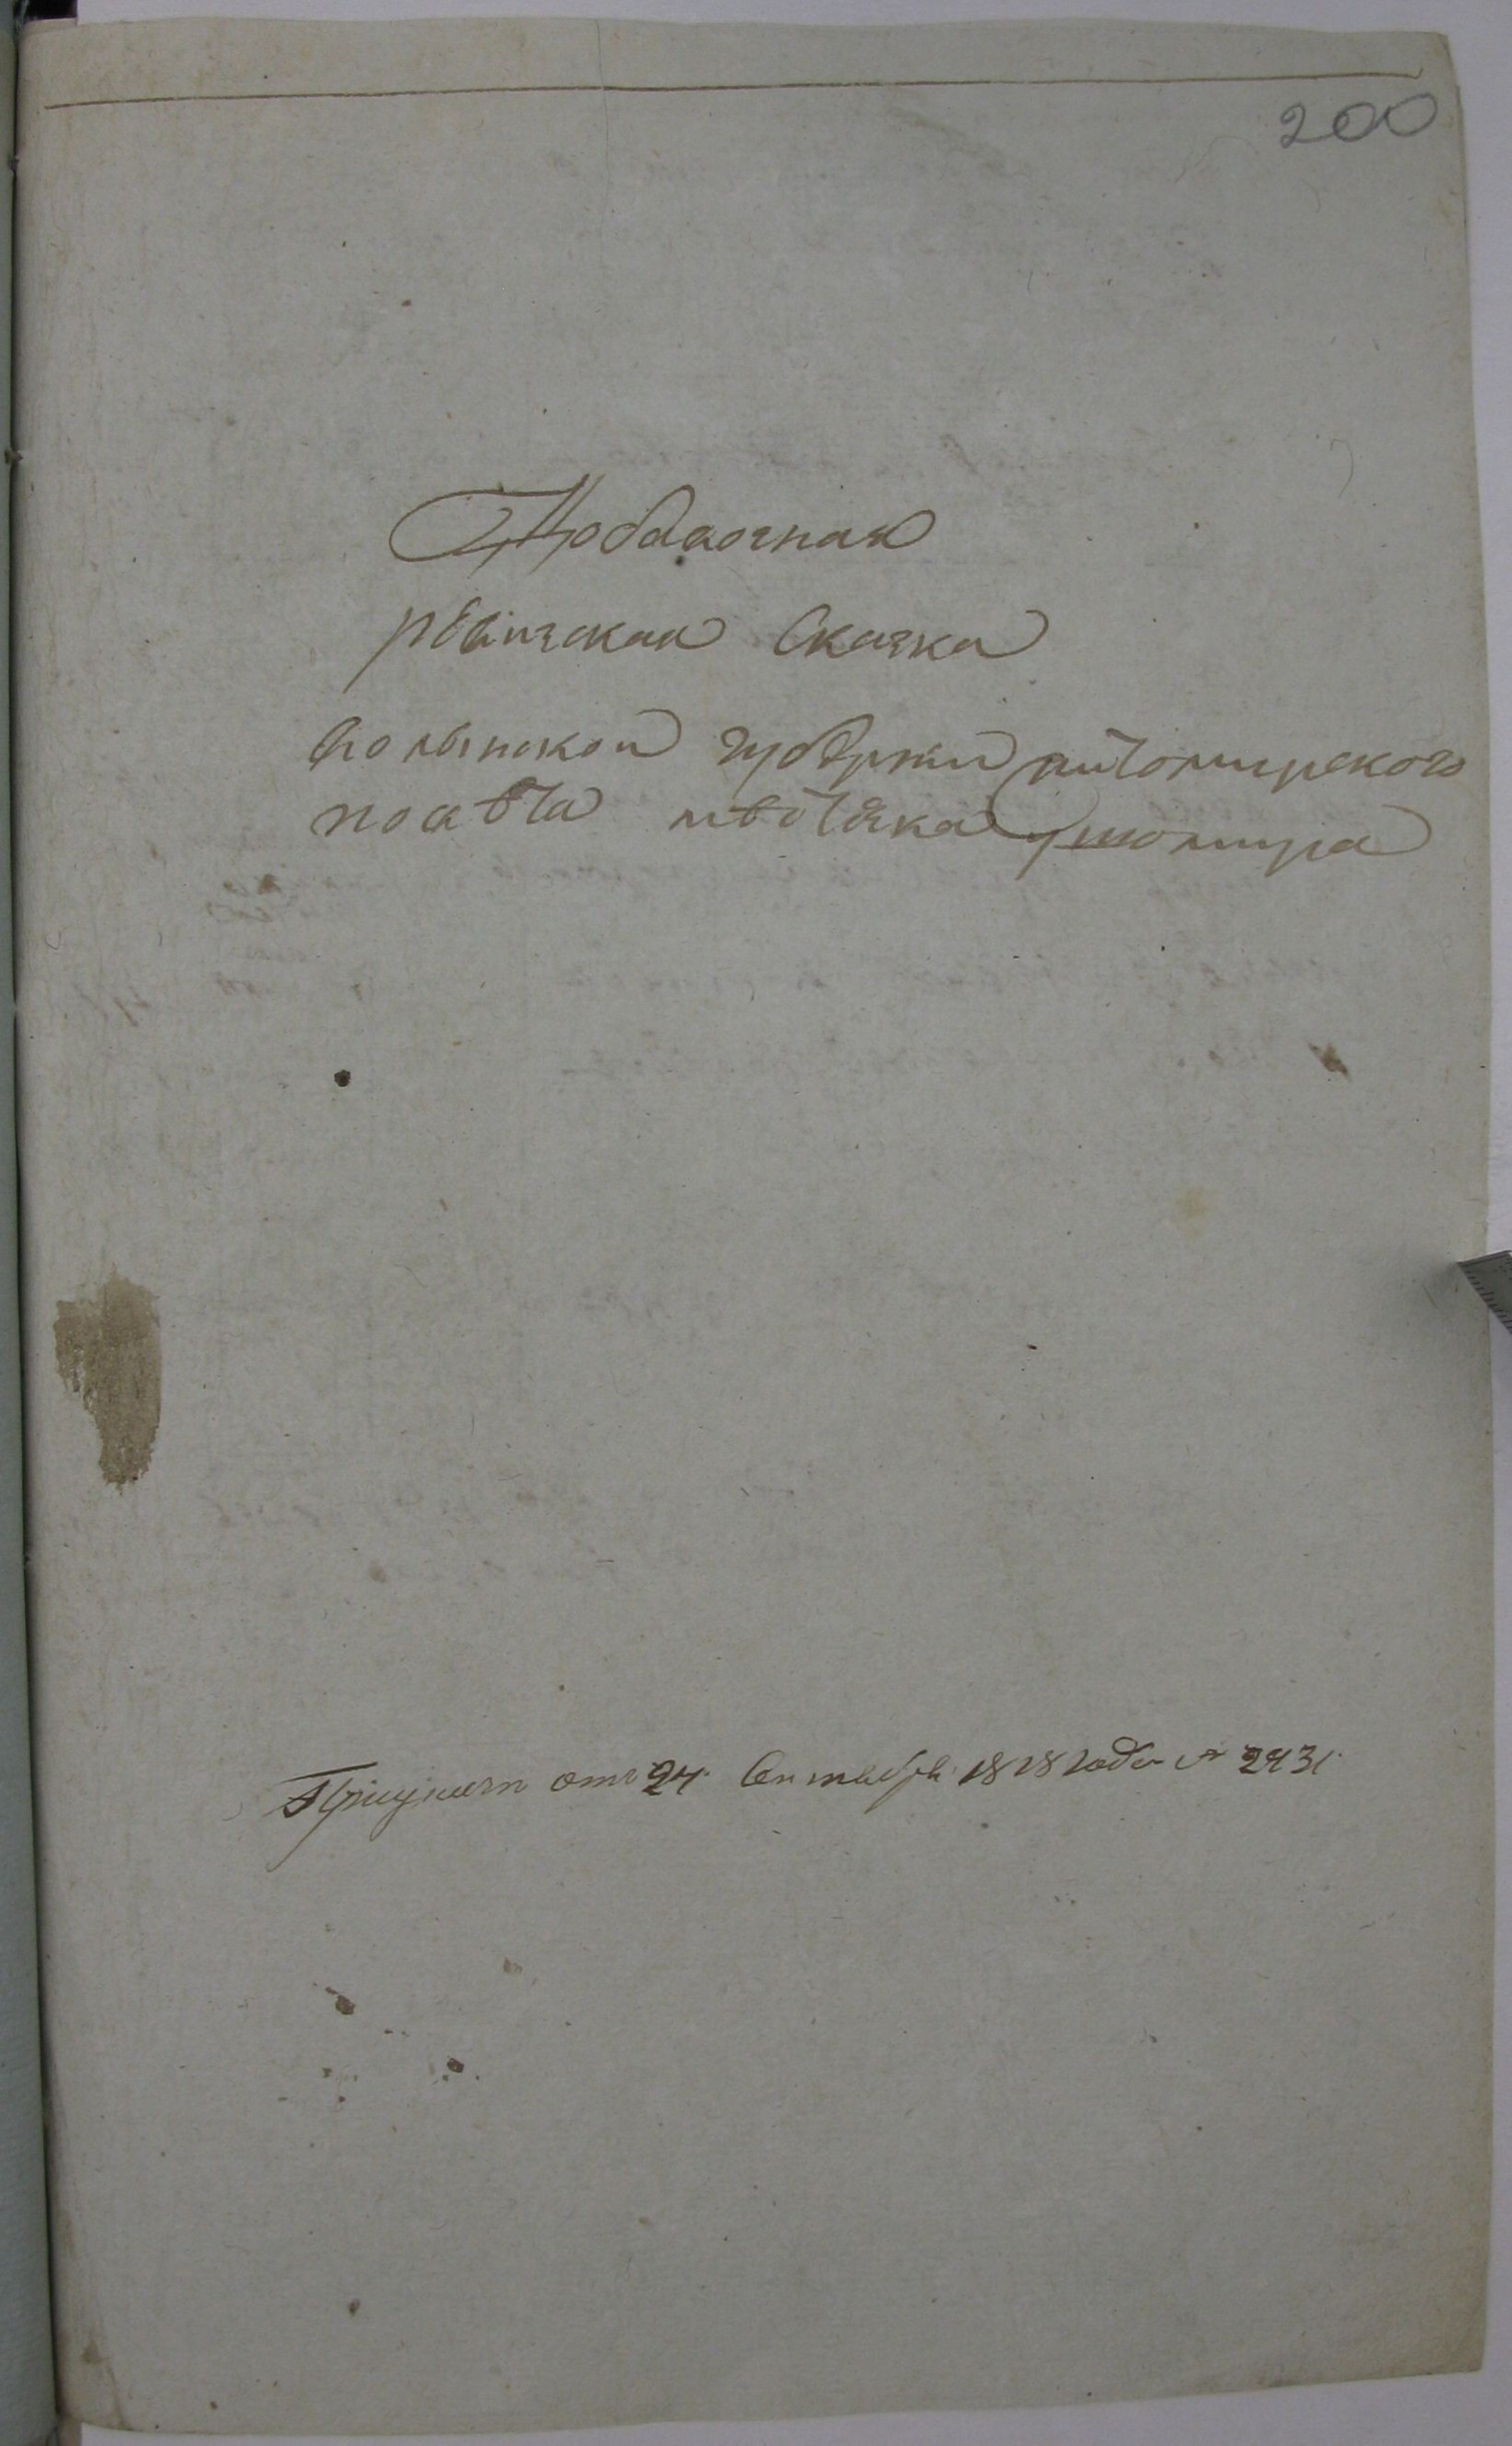 200
Добавочная
ревизская Сказка
волынской губернии житомирского
повѣта мѣстечка
от 24 Сентября 1818 года № 2431